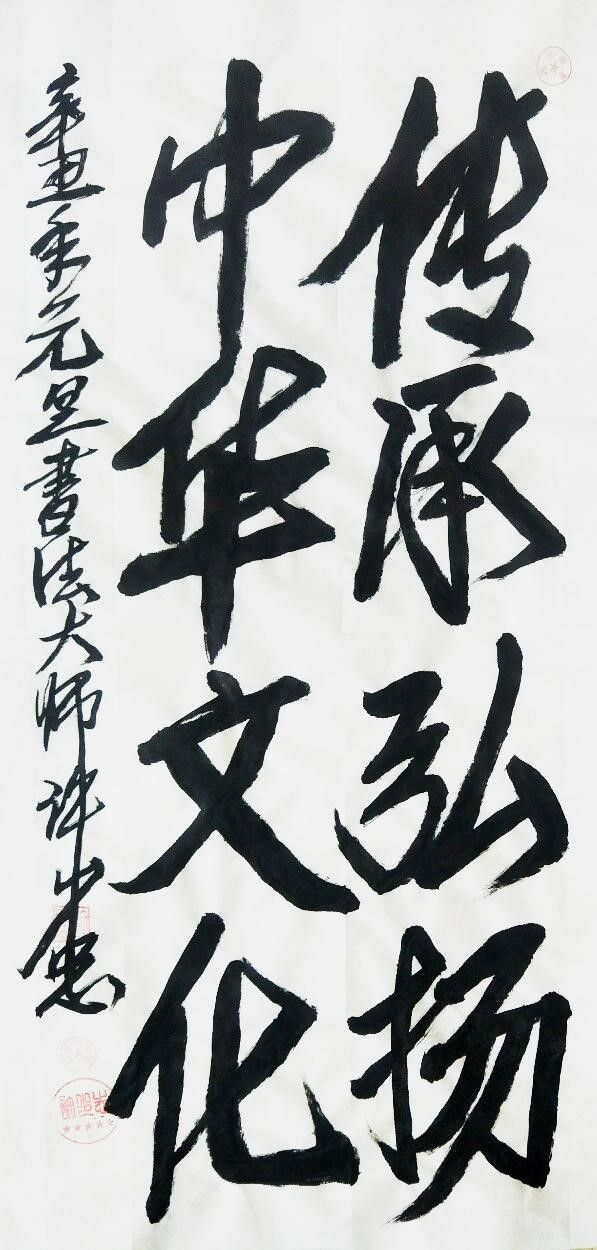 传承弘扬
中华文化
辛丑年元旦書法大师许